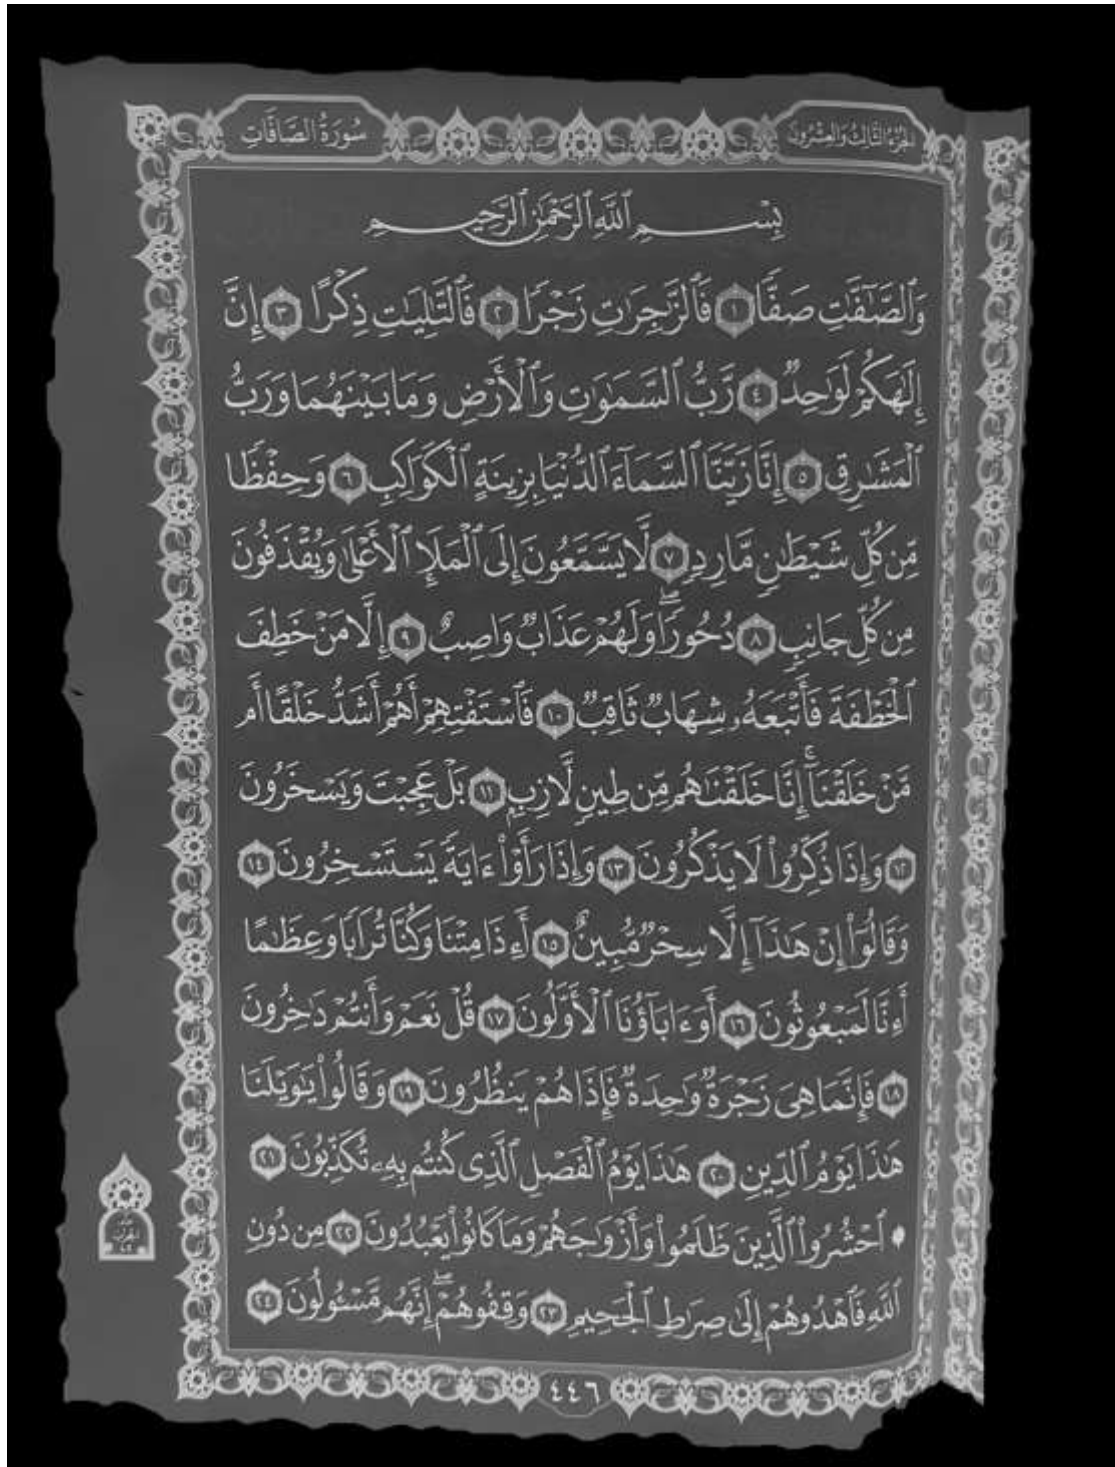 الجزء الثالث والعشرون
سُورَةُ الصَّافَّاتِ
بِسْمِ ٱللَّهِ ٱلرَّحْمَٰنِ ٱلرَّحِيمِ
وَٱلصَّٰٓفَّٰتِ صَفّٗا ١ فَٱلزَّٰجِرَٰتِ زَجۡرٗا ٢ فَٱلتَّٰلِيَٰتِ ذِكۡرًا ٣ إِنَّ
إِلَٰهَكُمۡ لَوَٰحِدٞ ٤ رَّبُّ ٱلسَّمَٰوَٰتِ وَٱلۡأَرۡضِ وَمَا بَيۡنَهُمَا وَرَبُّ
ٱلۡمَشَٰرِقِ ٥ إِنَّا زَيَّنَّا ٱلسَّمَآءَ ٱلدُّنۡيَا بِزِينَةٍ ٱلۡكَوَاكِبِ ٦ وَحِفۡظٗا
مِّن كُلِّ شَيۡطَٰنٖ مَّارِدٖ ٧ لَّا يَسَّمَّعُونَ إِلَى ٱلۡمَلَإِ ٱلۡأَعۡلَىٰ وَيُقۡذَفُونَ
مِن كُلِّ جَانِبٖ ٨ دُحُورٗاۖ وَلَهُمۡ عَذَابٞ وَاصِبٌ ٩ إِلَّا مَنۡ خَطِفَ
ٱلۡخَطۡفَةَ فَأَتۡبَعَهُۥ شِهَابٞ ثَاقِبٞ ١٠ فَٱسۡتَفۡتِهِمۡ أَهُمۡ أَشَدُّ خَلۡقًا أَم
مَّنۡ خَلَقۡنَآۚ إِنَّا خَلَقۡنَٰهُم مِّن طِينٖ لَّازِبِۭ ١١ بَلۡ عَجِبۡتَ وَيَسۡخَرُونَ
١٢ وَإِذَا ذُكِّرُواْ لَا يَذۡكُرُونَ ١٣ وَإِذَا رَأَوۡاْ ءَايَةٗ يَسۡتَسۡخِرُونَ ١٤
وَقَالُوٓاْ إِنۡ هَٰذَآ إِلَّا سِحۡرٞ مُّبِينٌ ١٥ أَءِذَا مِتۡنَا وَكُنَّا تُرَابٗا وَعِظَٰمًا
أَءِنَّا لَمَبۡعُوثُونَ ١٦ أَوَءَابَآؤُنَا ٱلۡأَوَّلُونَ ١٧ قُلۡ نَعَمۡ وَأَنتُمۡ دَٰخِرُونَ
١٨ فَإِنَّمَا هِيَ زَجۡرَةٞ وَٰحِدَةٞ فَإِذَا هُمۡ يَنظُرُونَ ١٩ وَقَالُواْ يَٰوَيۡلَنَا
هَٰذَا يَوۡمُ ٱلدِّينِ ٢٠ هَٰذَا يَوۡمُ ٱلۡفَصۡلِ ٱلَّذِي كُنتُم بِهِۦ تُكَذِّبُونَ ٢١
۞ ٱحۡشُرُواْ ٱلَّذِينَ ظَلَمُواْ وَأَزۡوَٰجَهُمۡ وَمَا كَانُواْ يَعۡبُدُونَ ٢٢ مِن دُونِ
ٱللَّهِ فَٱهۡدُوهُمۡ إِلَىٰ صِرَٰطِ ٱلۡجَحِيمِ ٢٣ وَقِفُوهُمۡۖ إِنَّهُم مَّسۡـُٔولُونَ ٢٤
٤٤٦